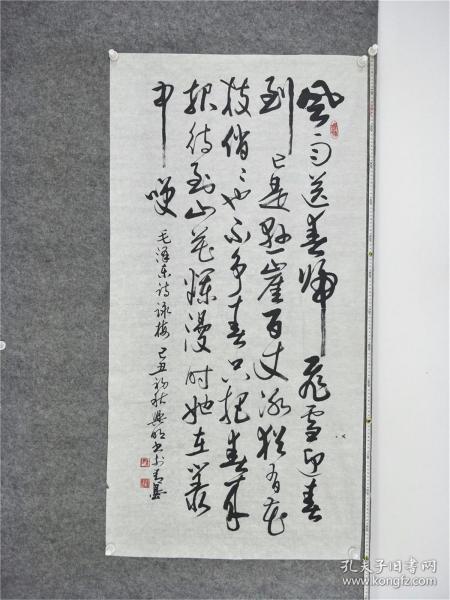 风雨送春歸 飛雪迎春
到 已是悬崖百丈冰猶有花
枝俏〻也不争春只把春来
报待到山花爛漫时她在叢
中咲
毛泽东诗咏梅 己丑初秋
孔夫子旧书网
www.kongfz.com